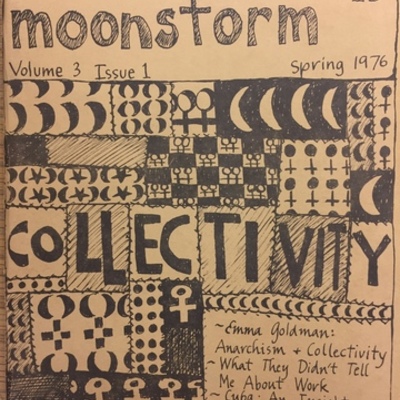 moonstorm
Volume 3 Issue 1
Spring 1976
COLLECTIVITY
~Emma Goldman:
Anarchism + Collectivity
~What They Didn't Tell
Me About Work
~Cuba: An Insight